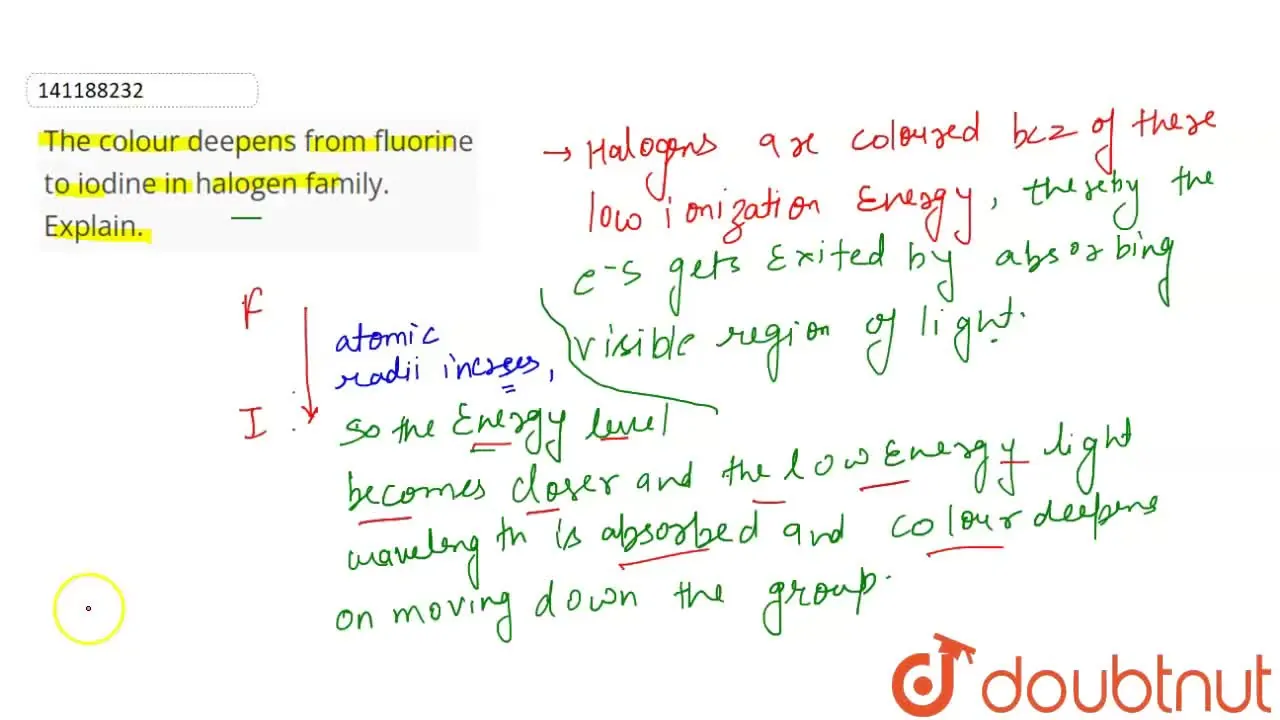 141188232
The colour deepens from fluorine
to iodine in halogen family.
Explain.
→ Halogens are coloured bcz of there
low ionization Energy, thereby the
e-s gets Exited by absorbing
visible region of light.
F
I
atomic
radii increses,
so the Energy level
becomes closer and the low Energy light
wavelength is absorbed and colour deepens
on moving down the group.
doubtnut